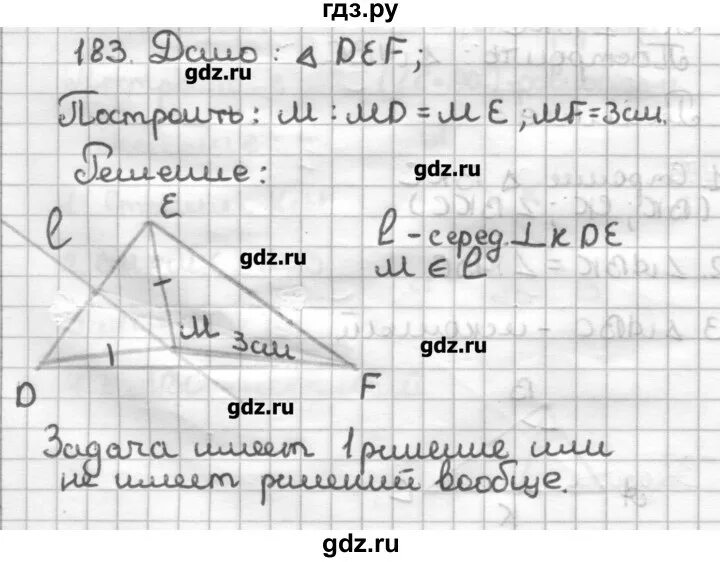 гдз.ру
183. Дано: △ DEF;
gdz.ru
Построить: M : MD = ME, MF=3см.
Решение:
gdz.ru
E
ℓ
ℓ - серед. ⊥ к DE
gdz.ru
M ∈ ℓ
M
3 см
gdz.ru
D
F
gdz.ru
Задача имеет 1 решение или
не имеет решений вообще.
gdz.ru
gdz.ru